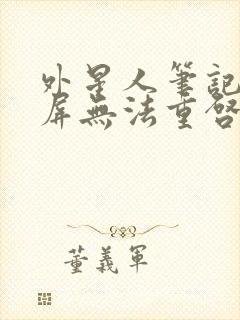 外星人筆記
屏無法重啓
董義軍